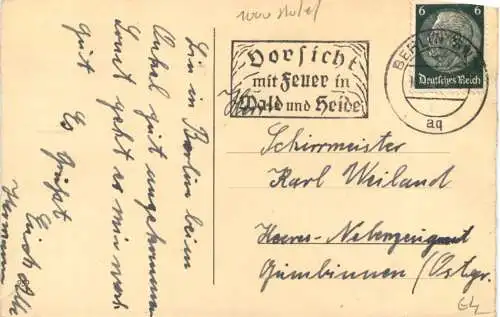 Bin in Berlin beim
Onkel gut angekommen
Sonst geht es mir noch
gut
Es grüßt
Euch Alle
Hermann
Vorsicht
mit Feuer in
Wald und Heide
6 6
Deutsches Reich
BERLIN
aq
Herrn
Schirrmeister
Karl Weiland
Heeres-Nebenzeugamt
Gumbinnen (Ostpr.